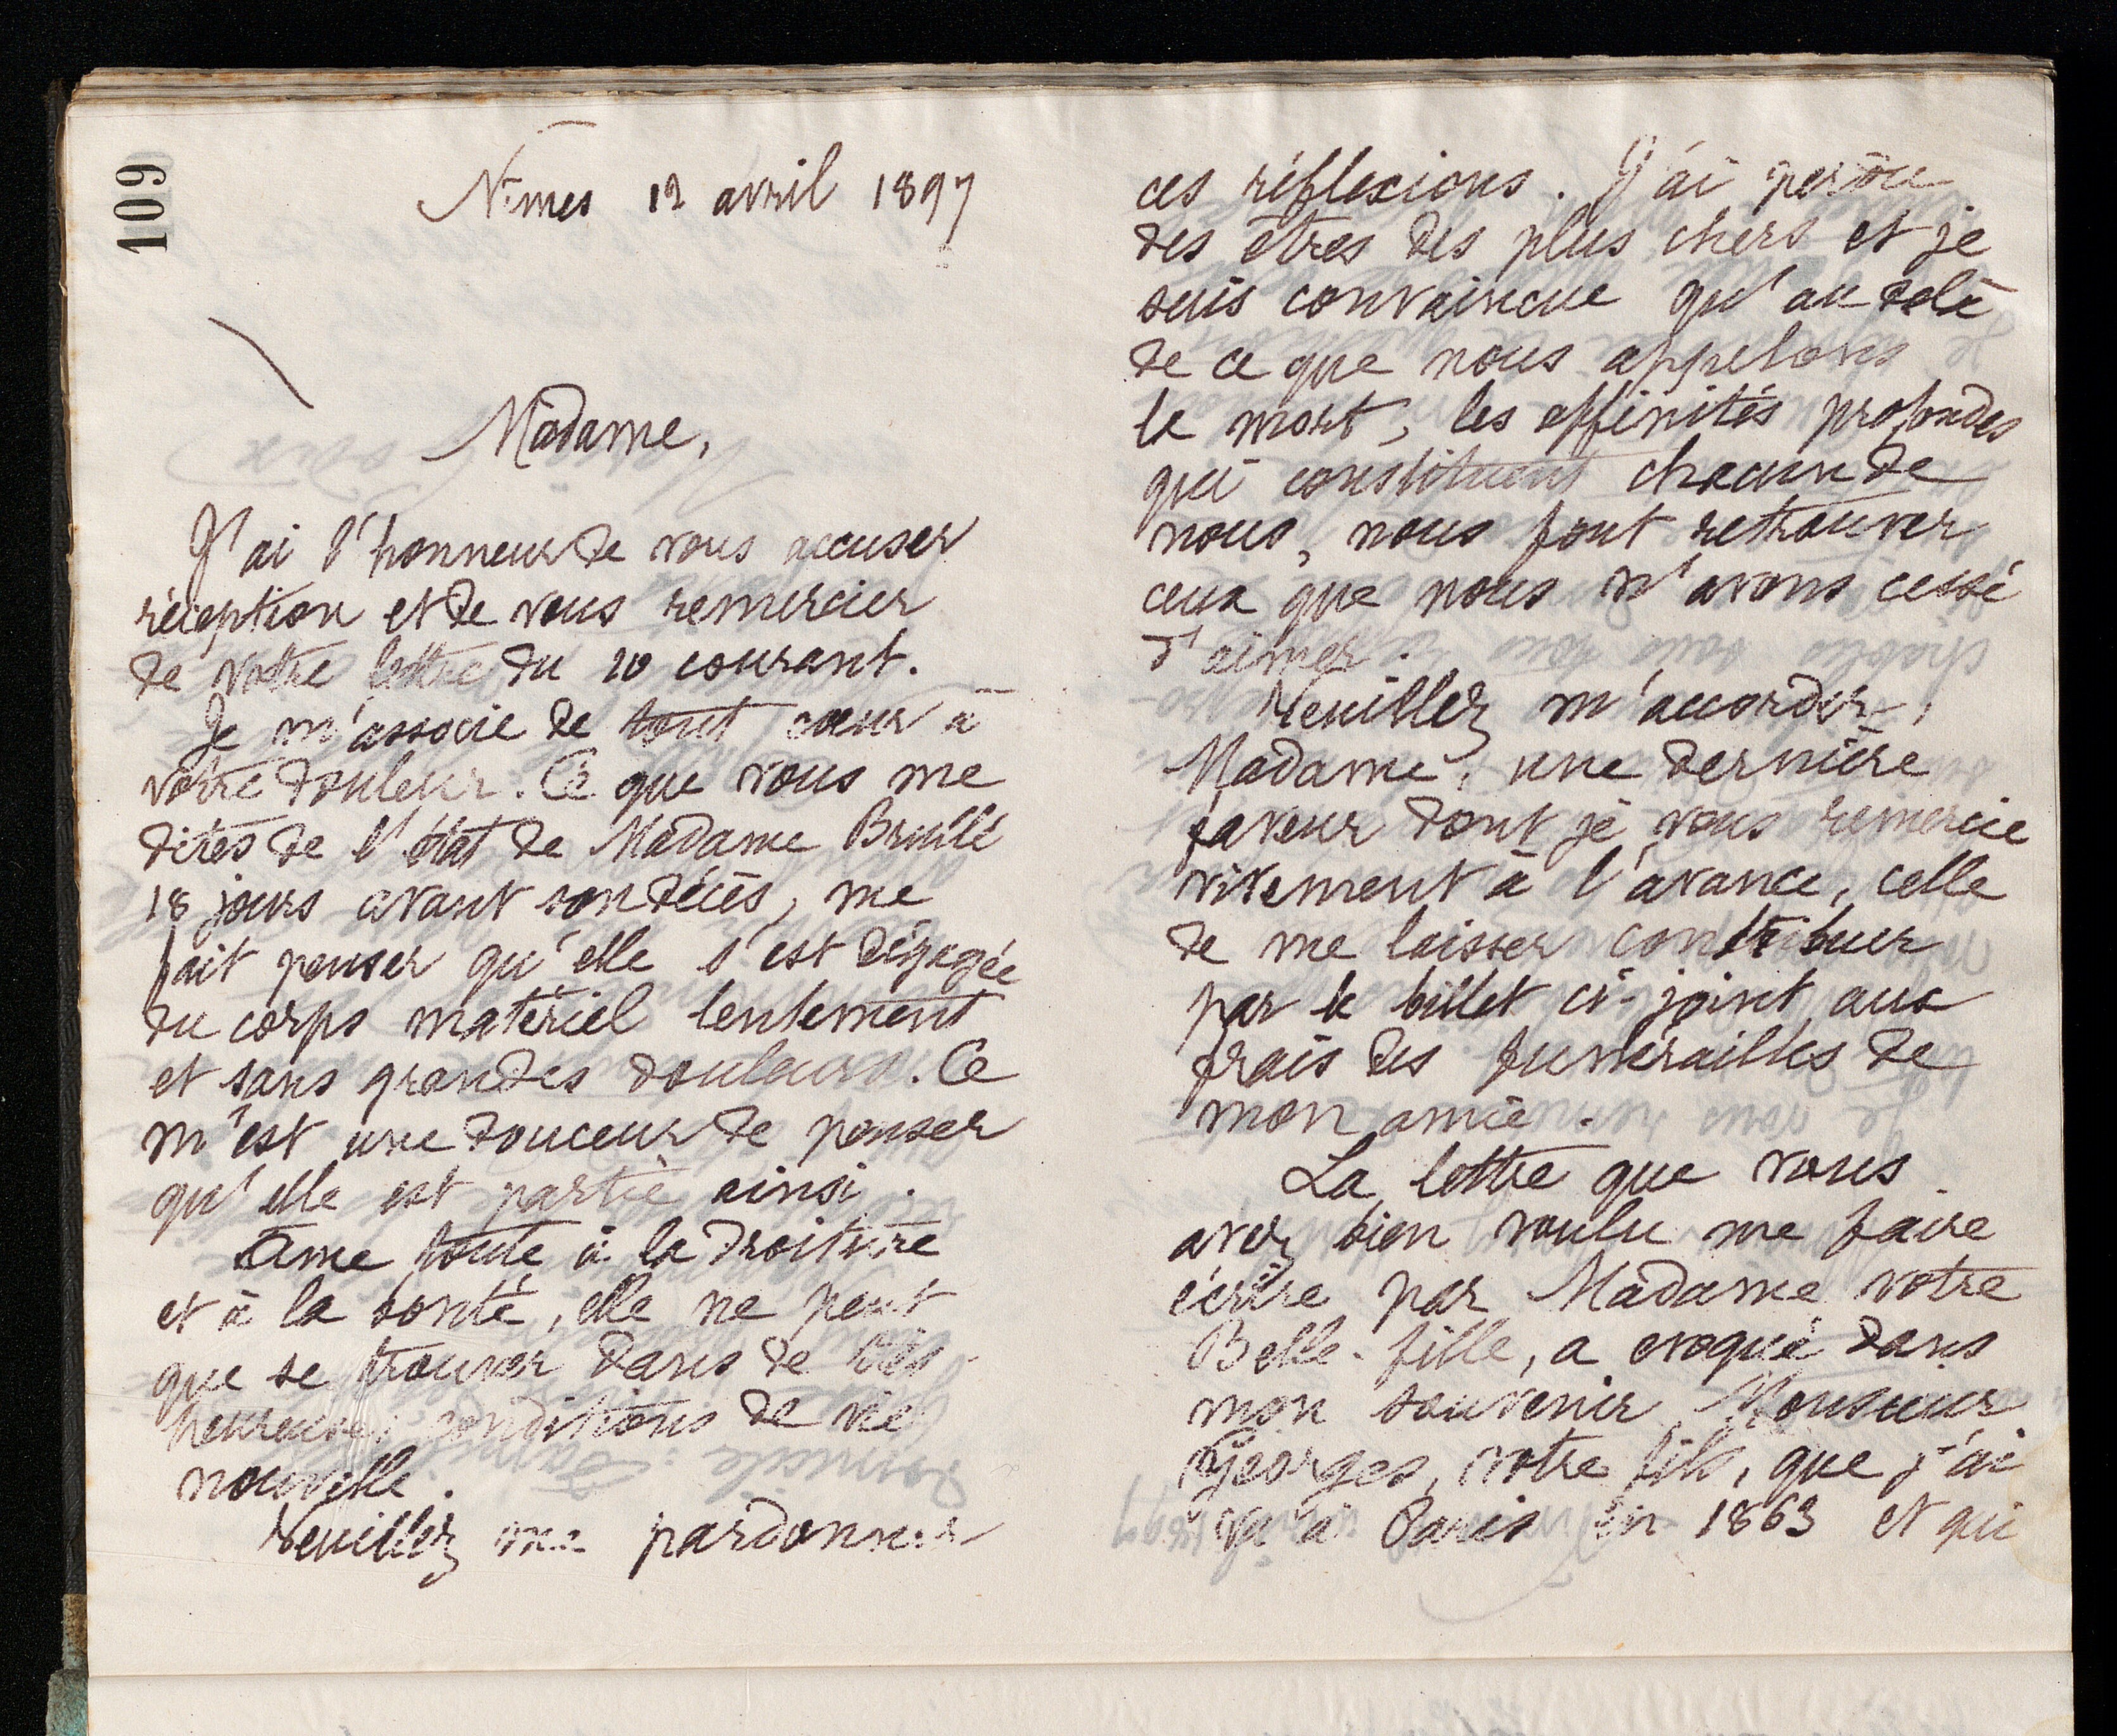 109
Nîmes 12 avril 1897
Madame,
J'ai l'honneur de vous accuser
réception et de vous remercier
de votre lettre du 10 courant.
Je m'associe de tout cœur à
votre douleur. Ce que vous me
dites de l'état de Madame Brullé
18 jours avant son décès, me
fait penser qu'elle s'est dégagée
du corps matériel lentement
et sans grandes douleurs. Ce
m'est une douceur de penser
qu'elle est partie ainsi.
Âme toute à la droiture
et à la bonté, elle ne peut
que se trouver dans de très
heureuses conditions de vie
nouvelle.
Veuillez me pardonner
ces réflexions. J'ai perdu
des êtres des plus chers et je
suis convaincue qu'au delà
de ce que nous appelons
la mort, les affinités profondes
qui constituent chacun de
nous, nous font retrouver
ceux que nous n'avons cessé
d'aimer.
Veuillez m'accorder,
Madame, une dernière
faveur dont je vous remercie
vivement à l'avance, celle
de me laisser contribuer
par le billet ci-joint aux
frais des funérailles de
mon amie.
La lettre que vous
avez bien voulu me faire
écrire par Madame votre
Belle-fille, a évoqué dans
mon souvenir Monsieur
Georges, votre fils, que j'ai
vu à Paris en 1863 et qui